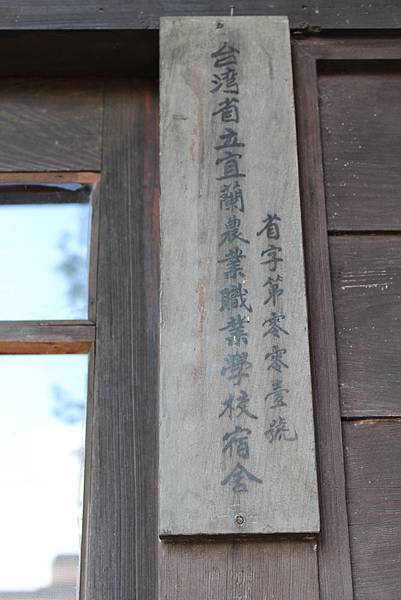 台湾省立宜蘭農業職業學校宿舍
省字第零零壹號